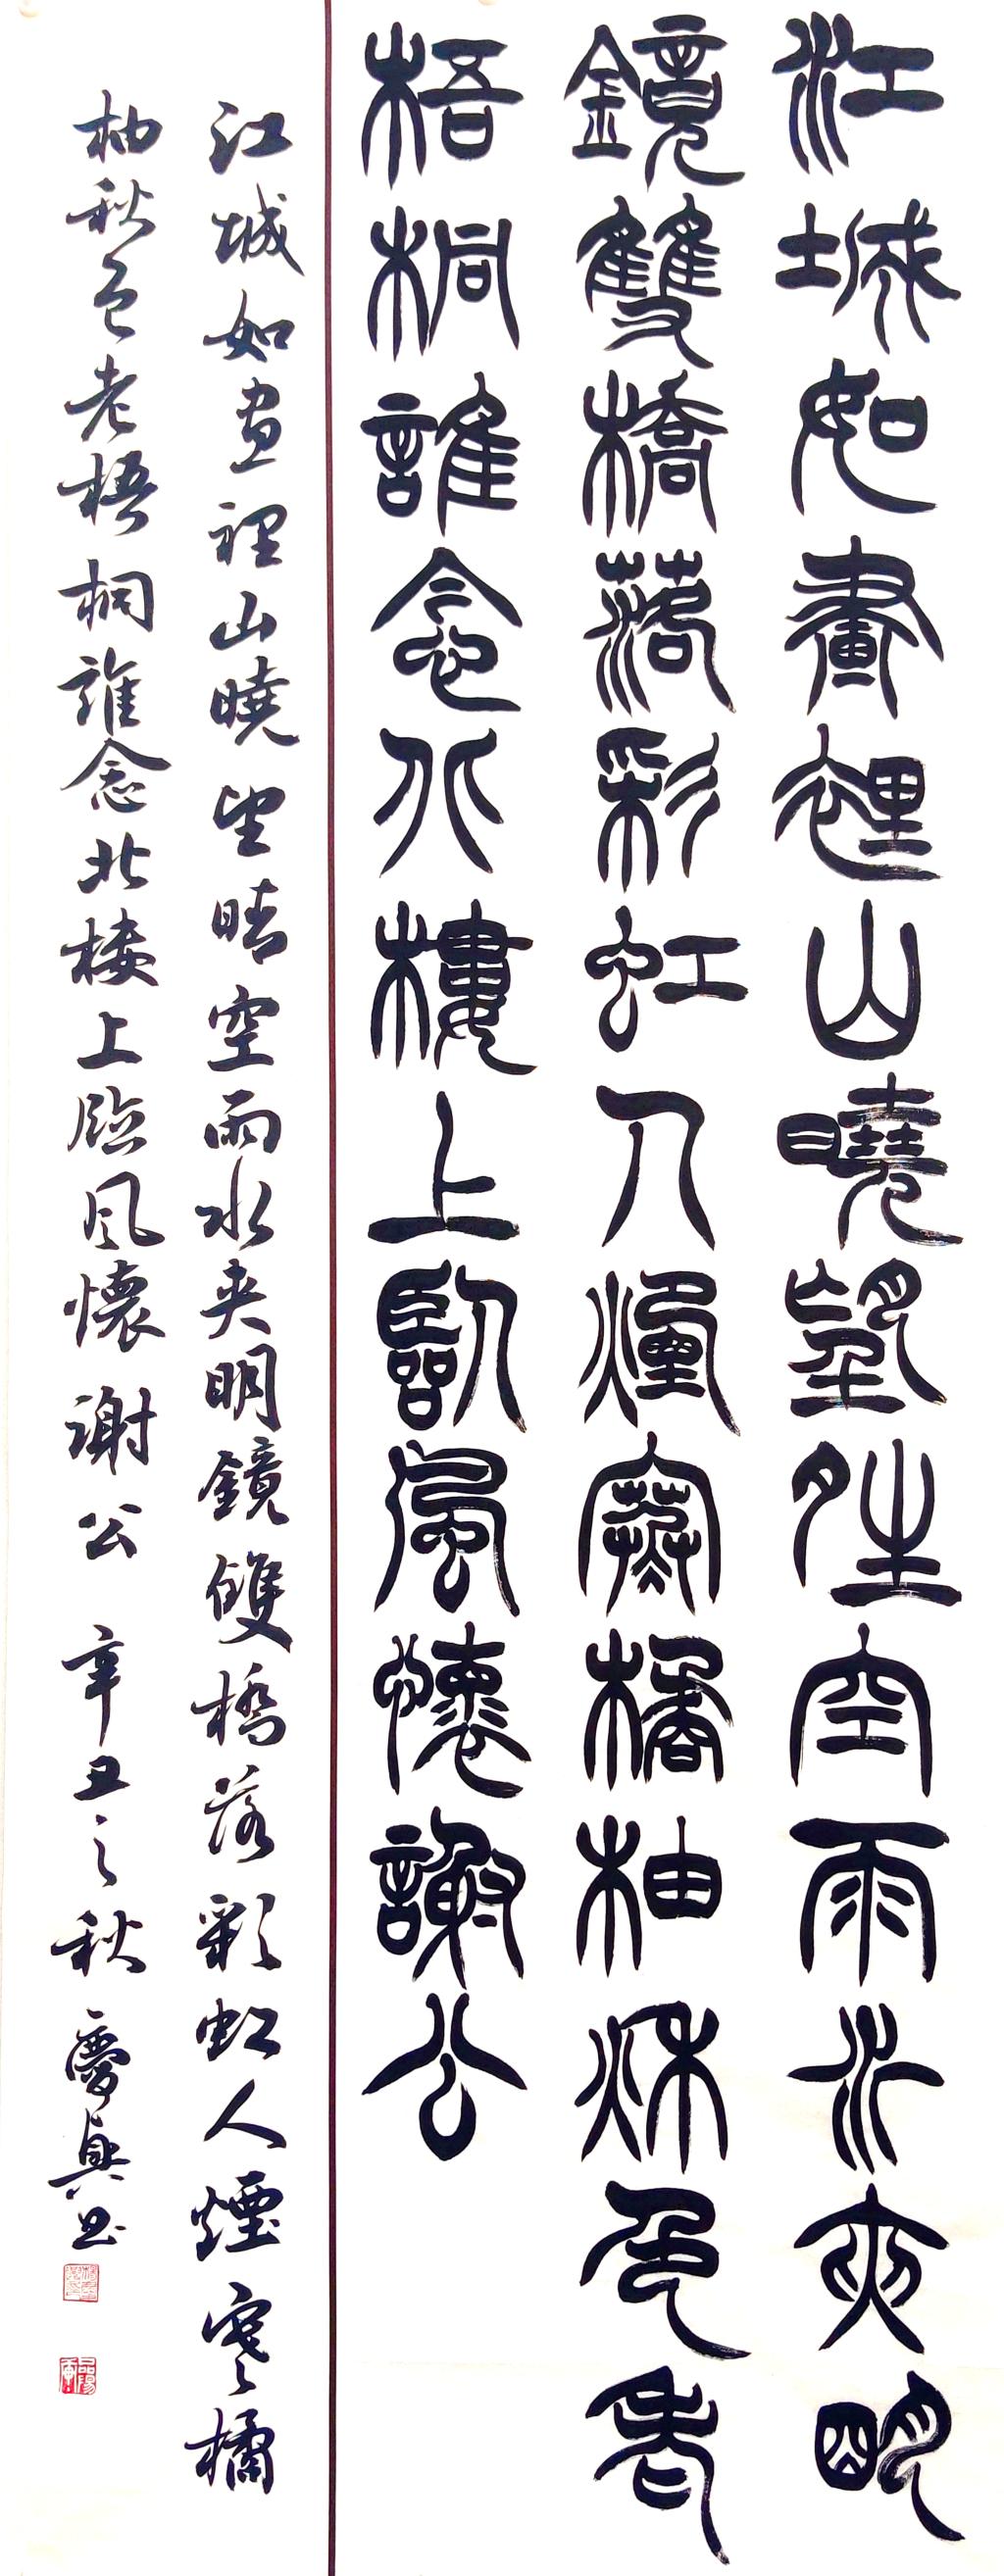 江城如畫裡山曉望晴空雨水夾明
鏡雙橋落彩虹人煙寒橘柚秋色老
梧桐誰念北樓上臨風懷謝公
江城如畫裡山曉望晴空雨水夾明鏡雙橋落彩虹人煙寒橘
柚秋色老梧桐誰念北樓上臨風懷謝公 辛丑之秋 书